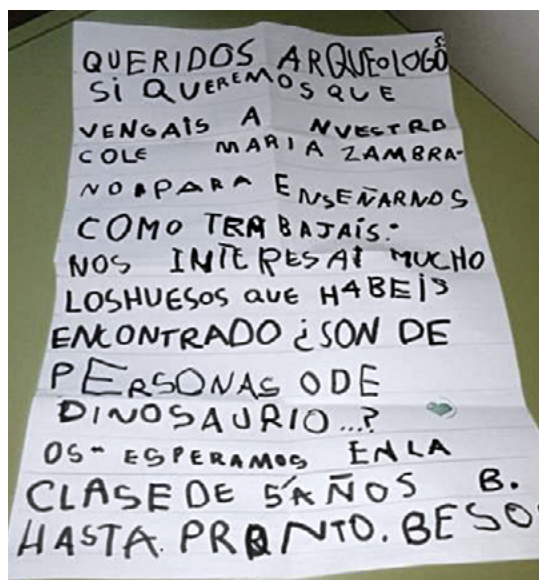 QUERIDOS ARQUEOLOGOS
SI QUEREMOS QUE
VENGAIS A NUESTRO
COLE MARIA ZAMBRA-
NO PARA ENSEÑARNOS
COMO TRABAJAIS.
NOS INTERESAI MUCHO
LOSHUESOS QUE HABEIS
ENCONTRADO ¿SON DE
PERSONAS ODE
DINOSAURIO...?
OS ESPERAMOS ENLA
CLASEDE 5 AÑOS B.
HASTA PRONTO. BESO